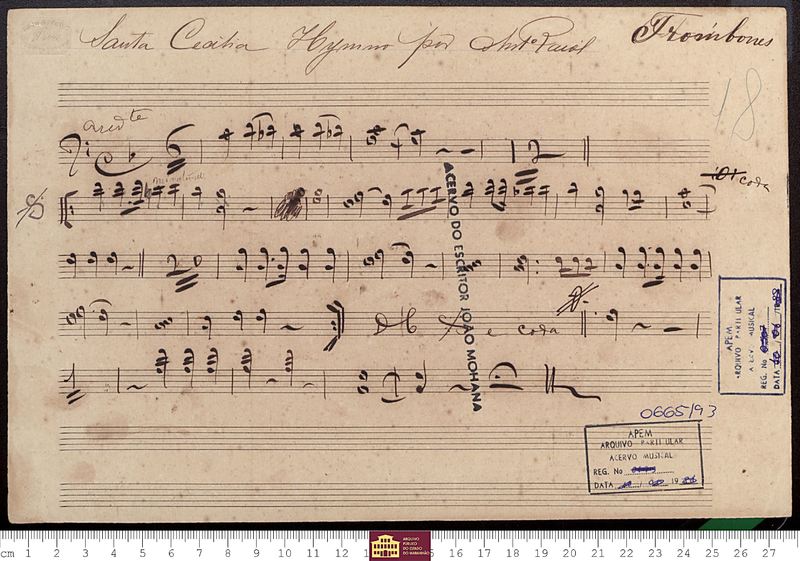 Santa Cecilia Hymno por Anto Raiol Trombones
18
Andte
coda
DC e coda
ACERVO DO ESCRITOR JOÃO MOHANA
APEM
ARQUIVO PARTICULAR
ACERVO MUSICAL
REG. No
DATA
0665/93
APEM
ARQUIVO PARTICULAR
ACERVO MUSICAL
REG. No
DATA
cm 1 2 3 4 5 6 7 8 9 10 11 12 16 17 18 19 20 21 22 23 24 25 26 27
ARQUIVO
PÚBLICO
DO ESTADO
DO MARANHÃO